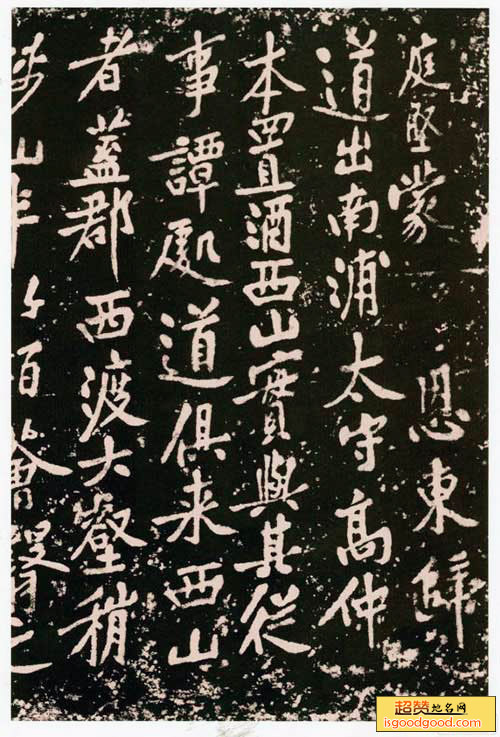 庭堅蒙 恩東歸
道出南浦太守高仲
本置酒西山實與其從
事譚處道俱来西山
者蓋郡西渡大壑稍
陟山半竹柏薈翳之
超赞地名网
isgoodgood.com